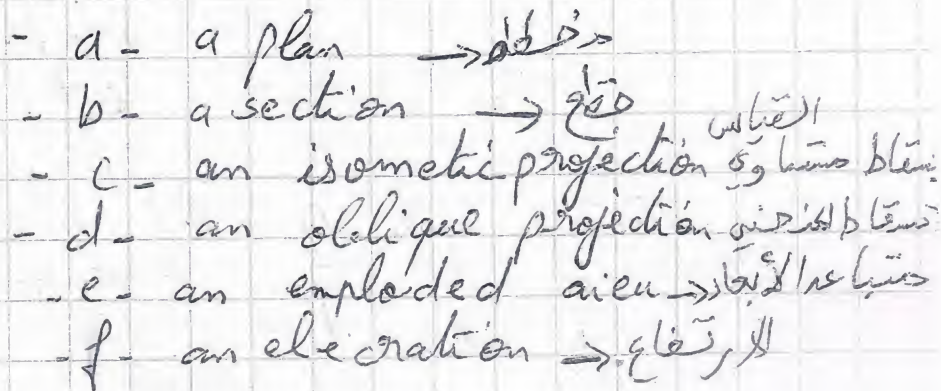 - a - a plan → مخطط
- b - a section → قطع
- c - an isometic projection إسقاط متساوي القياس
- d - an oblique projection إسقاط المنحني
- e - an emploded aieu → متباعد الأبعاد
- f - an elecration → الارتفاع